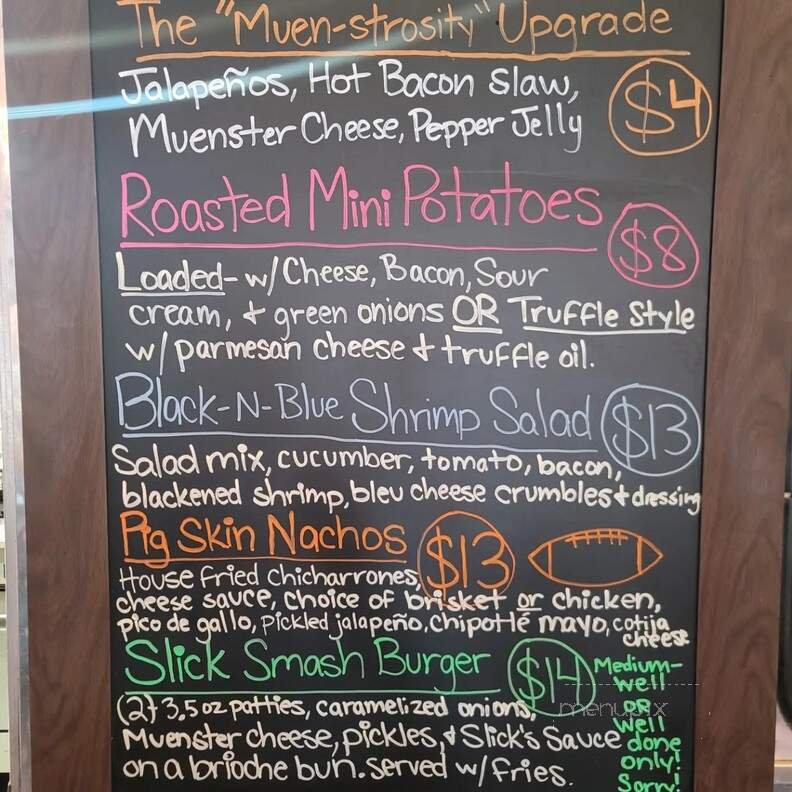 The "Muen-strosity" Upgrade
Jalapeños, Hot Bacon Slaw,
Muenster Cheese, Pepper Jelly
$4
Roasted Mini Potatoes
$8
Loaded- w/Cheese, Bacon, Sour
cream, + green onions OR Truffle Style
w/parmesan cheese + truffle oil.
Black-N-Blue Shrimp Salad $13
Salad mix, cucumber, tomato, bacon,
blackened shrimp, bleu cheese crumbles + dressing
Pig Skin Nachos $13
House fried chicharrones,
cheese sauce, choice of brisket or chicken,
pico de gallo, pickled jalapeño, chipotle mayo, cotija
cheese
Slick Smash Burger $14
(2) 3.5oz patties, caramelized onions,
Muenster cheese, pickles, + Slick's Sauce
on a brioche bun. served w/ fries.
Medium-
well
OR
well
done
only!
Sorry!
menupix